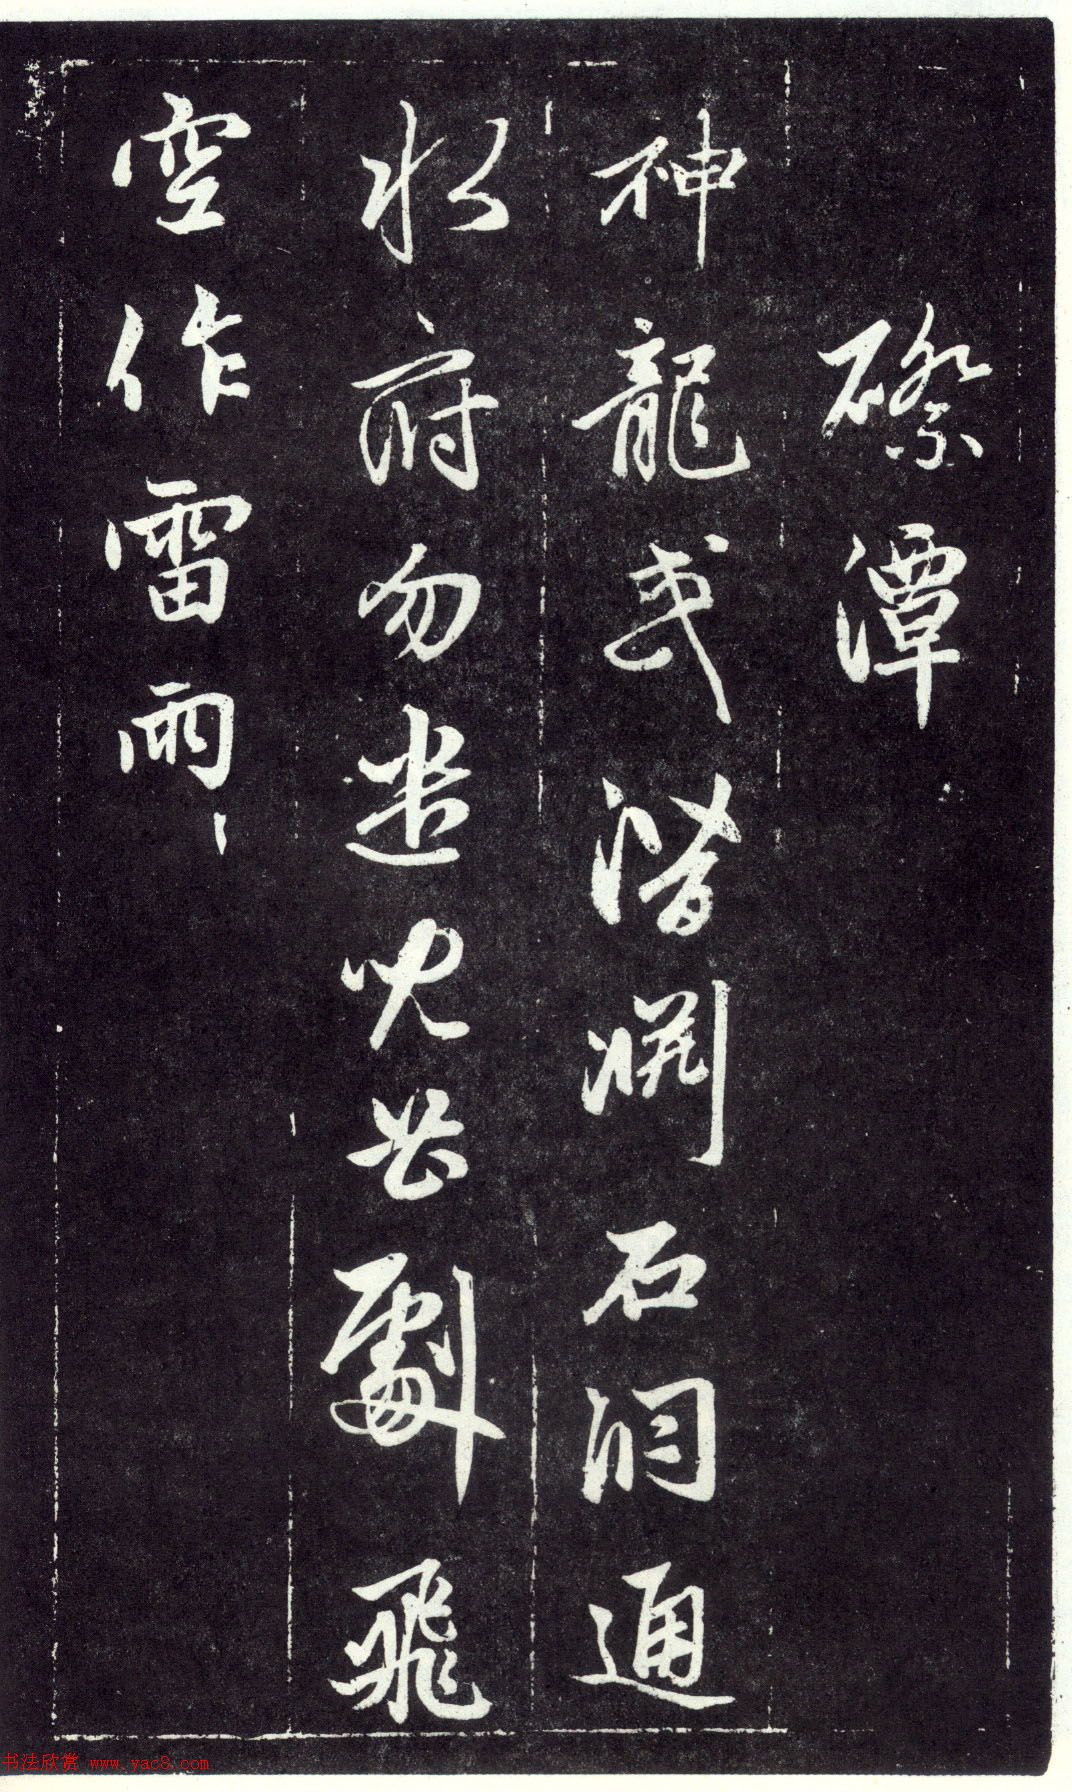 磜潭
神龍或潛淵石洞通
水府勿遣劇飛
空作雷雨
书法欣赏 www.yac8.com